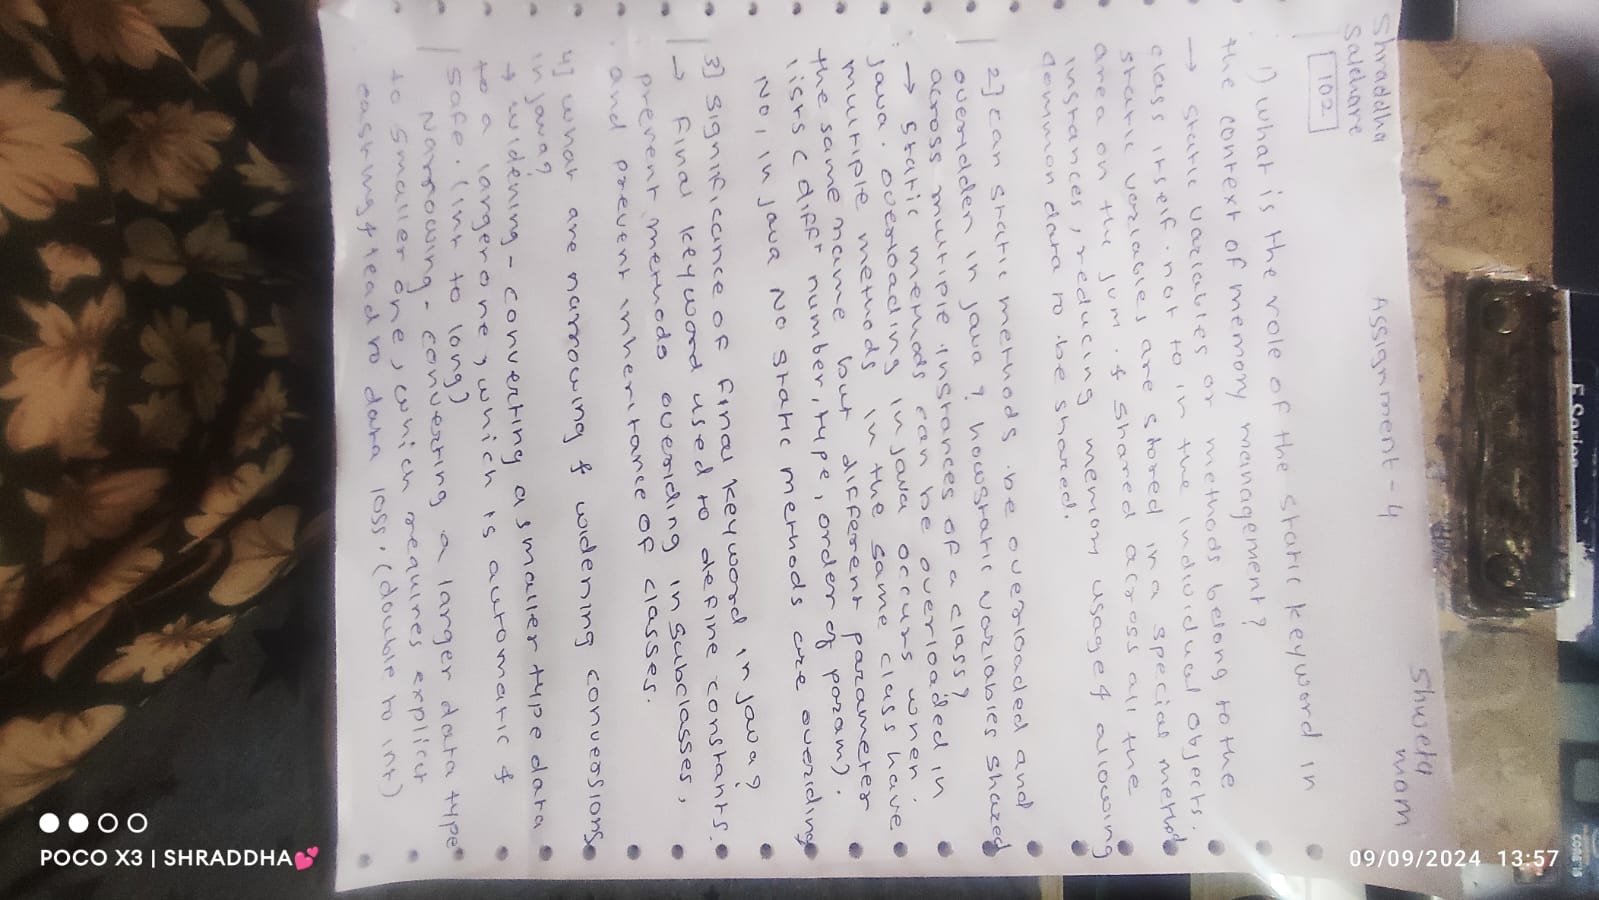 Shraddha
Saldhare
102
Assignment - 4
Shweta
mam
1) What is the role of the static keyword in
the context of memory management?
→ static variables or methods belong to the
class itself. not to in the individual objects.
static variables are stored in a special method
area on the jvm. & shared across all the
instances, reducing memory usage & allowing
common data to be shared.
2] can static methods be overloaded and
overridden in java? how static variables shared
across multiple instances of a class?
→ static methods can be overloaded in
java. overloading in java occurs when
multiple methods in the same class have
the same name but different parameter
lists (diff number, type, order of param).
No, in java No static methods are overiding
3] significance of final keyword in java?
→ Final keyword used to define constants.
prevent methods overiding in subclasses,
and prevent inheritance of classes.
4] what are narrowing & widening conversions
in java?
→ widening - converting a smaller type data
to a larger one, which is automatic &
safe. (int to long)
Narrowing - converting a larger data type
to smaller one, which requires explicit
casting & lead to data loss. (double to int)
POCO X3 | SHRADDHA💕
09/09/2024 13:57
CORE i5